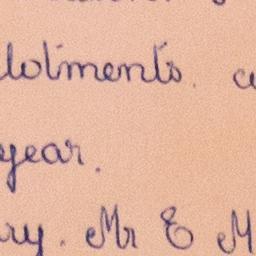 lotments.
year.
ry. Mr E M